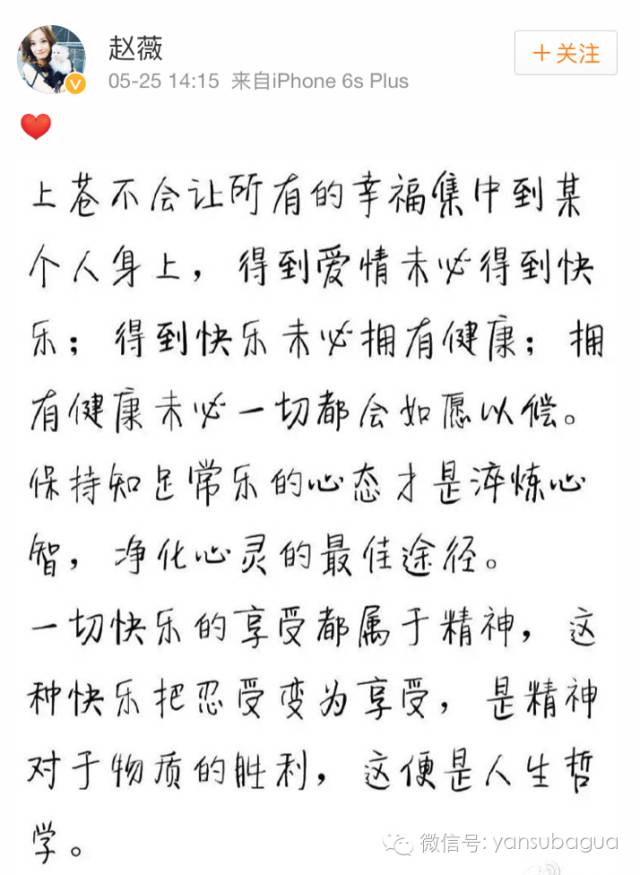 赵薇
+关注
05-25 14:15 来自iPhone 6s Plus
上苍不会让所有的幸福集中到某
个人身上，得到爱情未必得到快
乐；得到快乐未必拥有健康；拥
有健康未必一切都会如愿以偿。
保持知足常乐的心态才是淬炼心
智，净化心灵的最佳途径。
一切快乐的享受都属于精神，这
种快乐把忍受变为享受，是精神
对于物质的胜利，这便是人生哲
学。
微信号: yansubagua